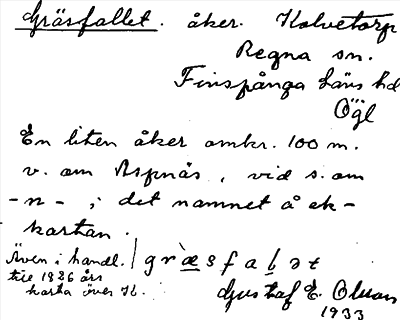 Gräsfallet. åker. Kolvetorp
Regna sn.
Finspånga läns hd
Ögl
En liten åker omkr. 100 m.
v. om Aspnäs, vid s. om
-n-, i det namnet å ek-
kartan.
Även i handl.
till 1826 års
karta över K.
græsfalət
Gustaf E. Olsson
1933